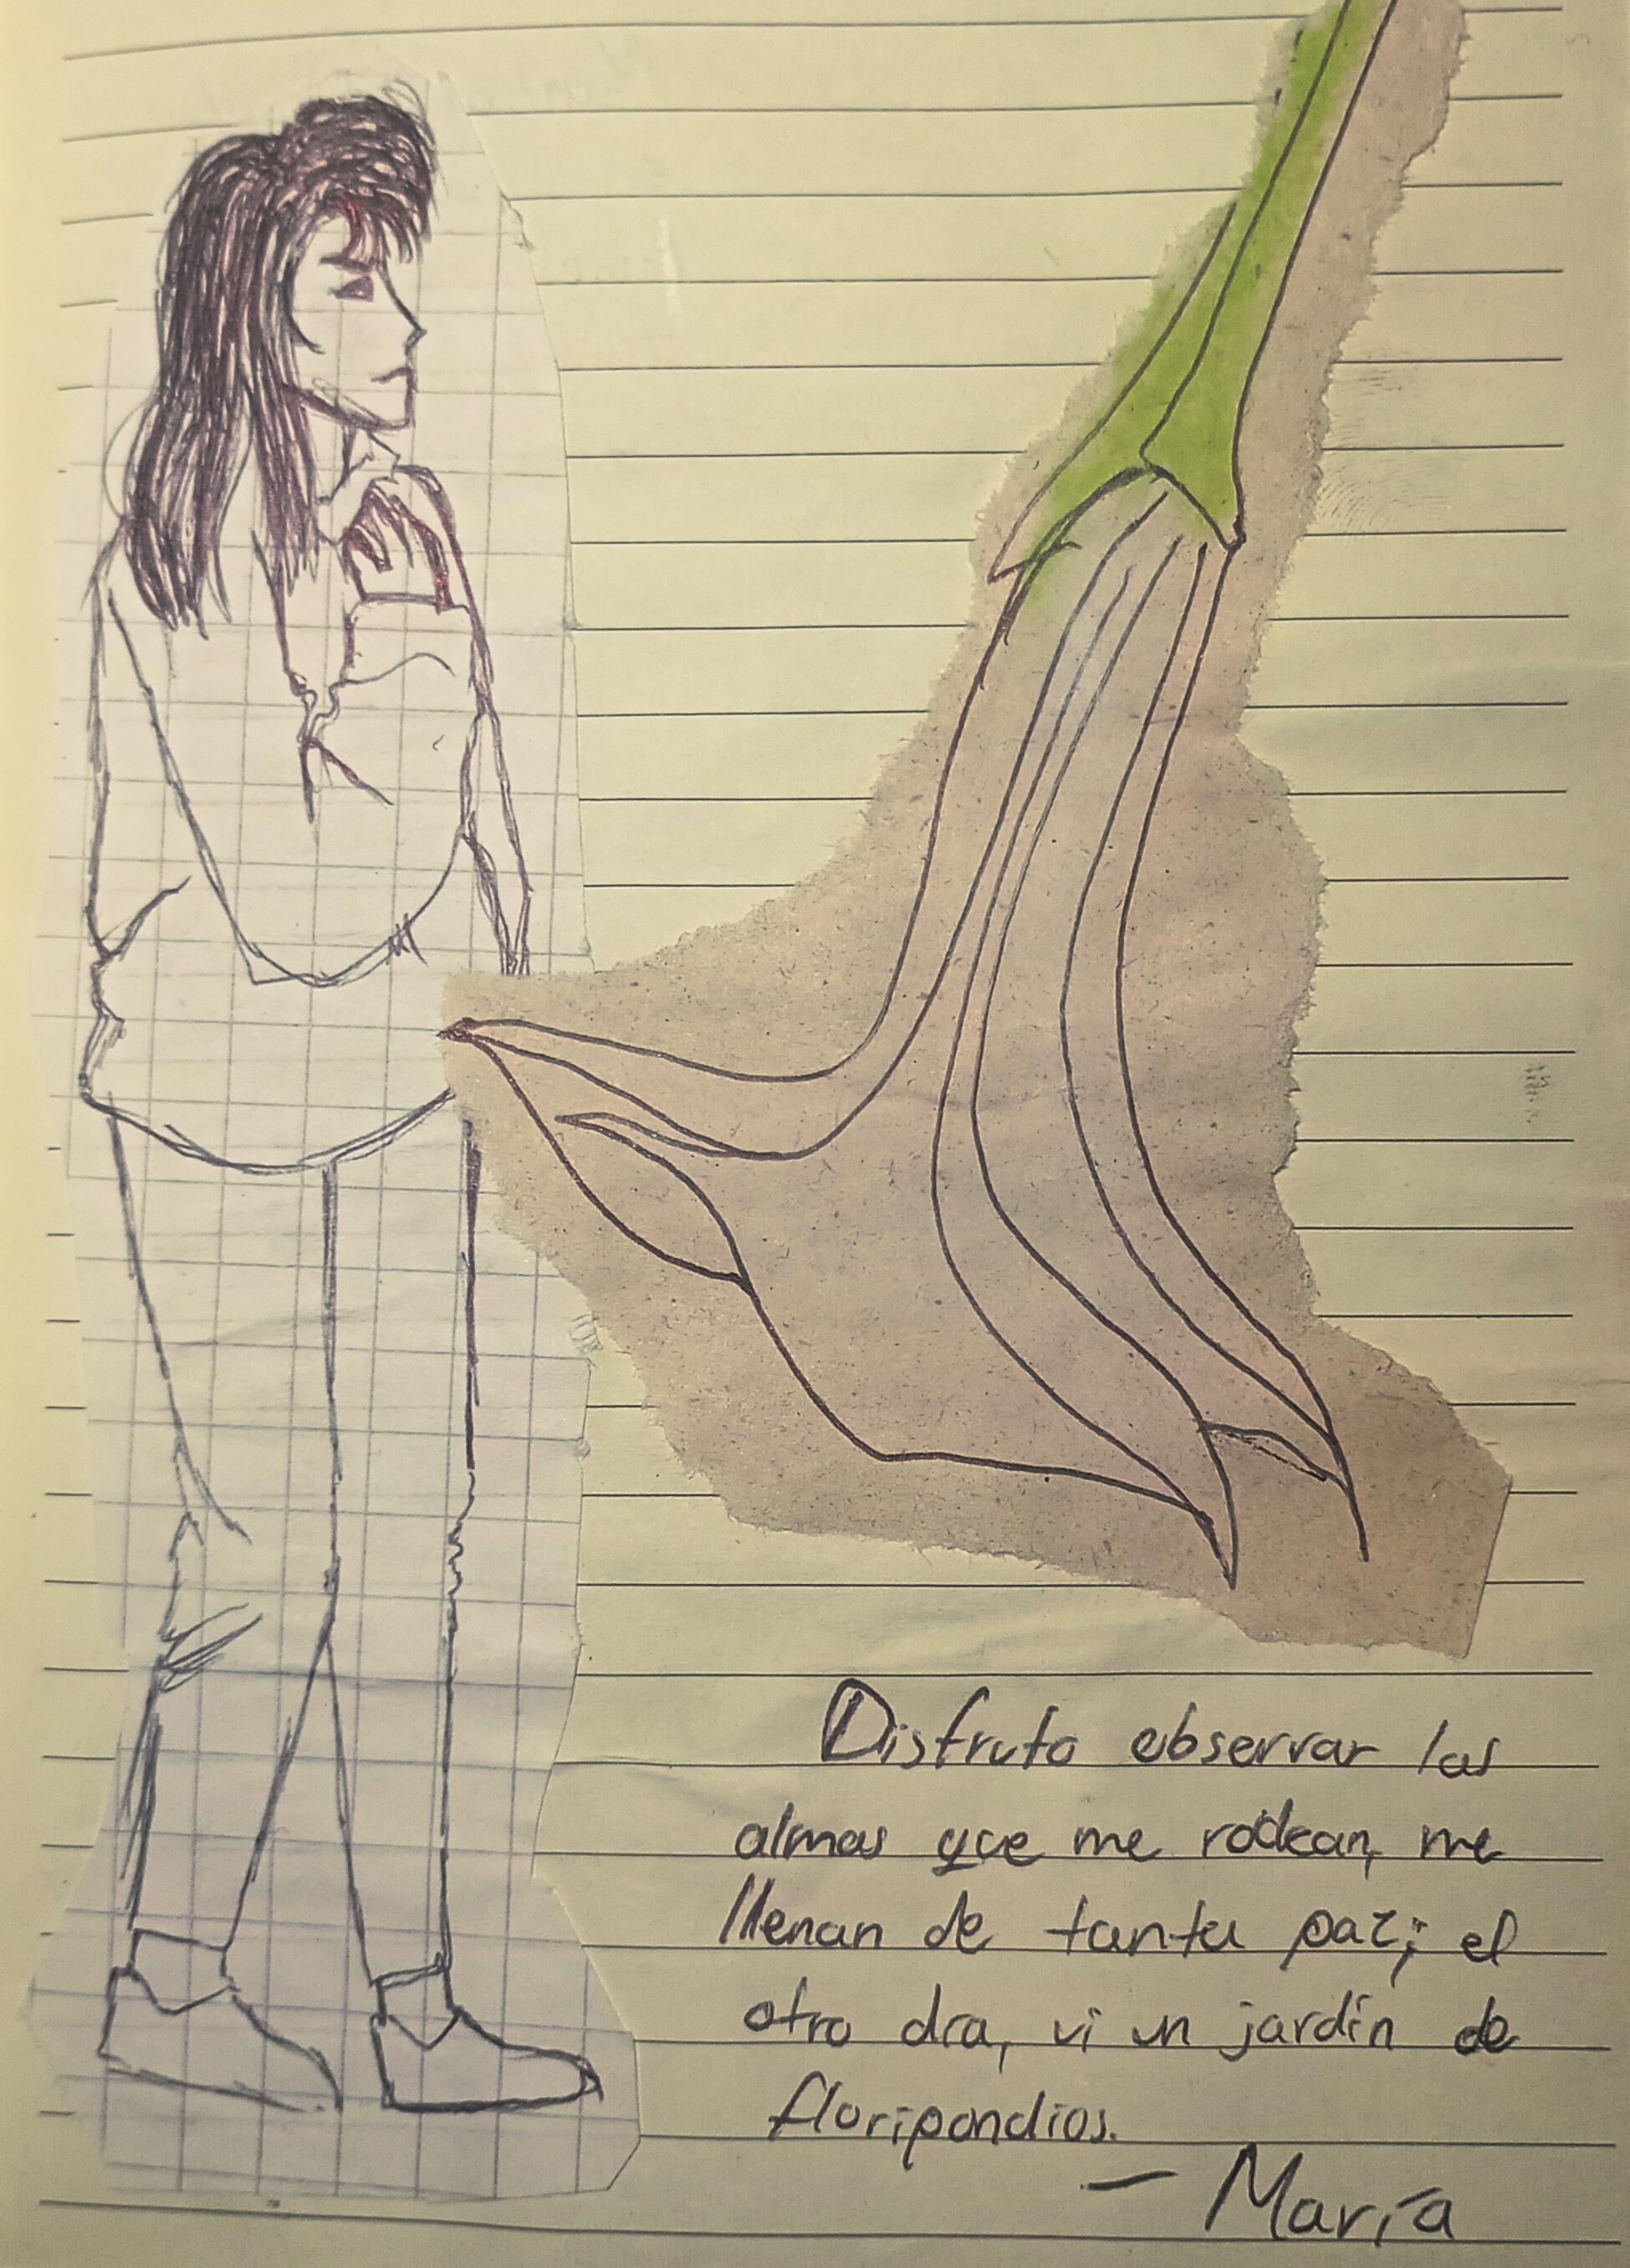 Disfruto observar las
almas que me rodean, me
llenan de tanta paz; el
otro día, vi un jardín de
floripondios.
— María